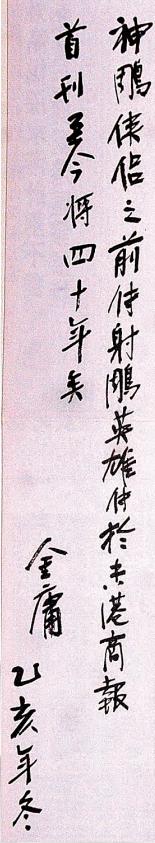 神鵰俠侶之前传射鵰英雄传於香港商報
首刊至今将四十年矣
金庸
乙亥年冬